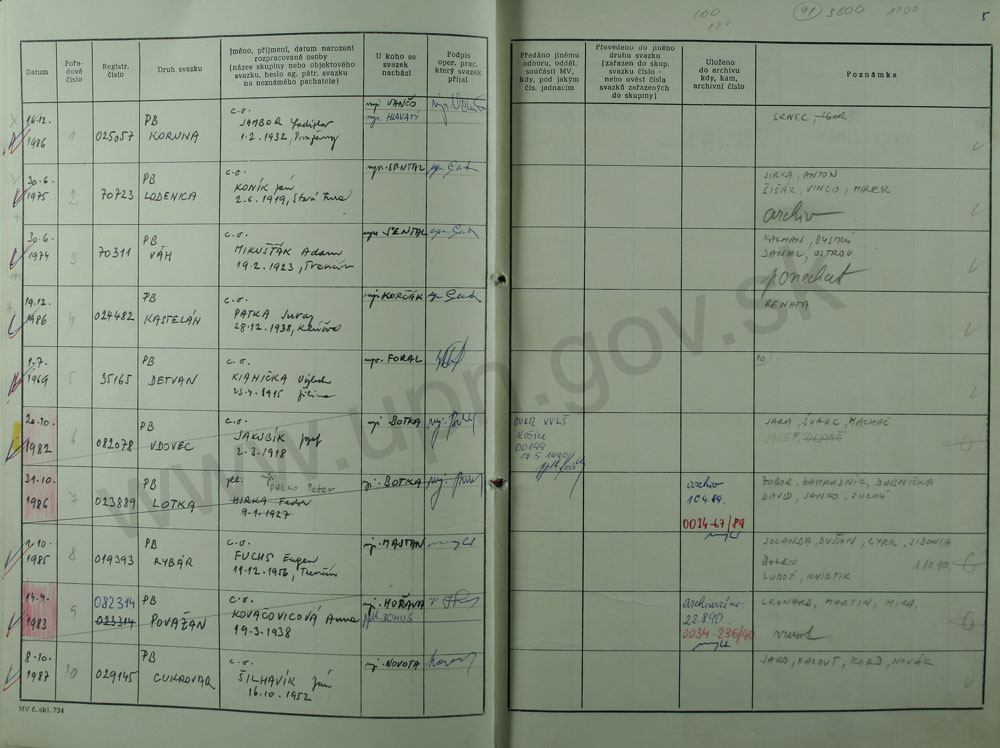 100
170
41 3600 1700
5
Datum
Pořa-
dové
číslo
Registr.
číslo
Druh svazku
Jméno, příjmení, datum narození
rozpracované osoby
(název skupiny nebo objektového
svazku, heslo ag. pátr. svazku
na neznámého pachatele)
U koho se
svazek
nachází
Podpis
oper. prac.
který svazek
přijal
Předáno jinému
odboru, odděl.
součásti MV,
kdy, pod jakým
čís. jednacím
Převedeno do jiného
druhu svazku
(zařazen do skup.
svazku číslo -
nebo uvést čísla
svazků zařazených
do skupiny)
Uloženo
do archivu
kdy, kam,
archivní číslo
Poznámka
16.12.
1986
1
025057
PB
KORUNA
č.o.
JAMBOR Ladislav
1.2.1932,
mjr. VANČO
mjr. HLAVATÝ
SRNEC, IGOR
30.6.
1975
2
70723
PB
LODENICA
č.o.
KONÍK Ján
2.6.1919, Stará Turá
npr. SENTAL
JIRKA, ANTON
ŠIŠÁK, VINCO, MIREK
archiv
30.6.
1974
3
70311
PB
VÁH
č.o.
MIKUŠŤÁK Adam
19.2.1923, Trenčín
SENTAL
KALMAN, BYSTRÝ
DANIEL, OSTROV
ponechat
19.12.
1986
4
024482
PB
KASTELÁN
č.o.
PATKA Juraj
28.12.1938,
mjr. KORČÁK
RENATA
1.7.
1969
5
35165
PB
DETVAN
č.o.
23.4.1915 Žilina
npr. FORAL
10)
20.10.
1982
6
082078
PB
VDOVEC
č.o.
JAKUBÍK Jozef
2.2.1918
mjr. BOTKA
VVLŠ
Košice
00144
17.5.1990
JARA, ŠVARC, MACHÁČ
JOSEF,
31.10.
1986
7
023889
PB
LOTKA
DACKO Peter
HIRKA Fedor
9.1.1927
mjr. BOTKA
archiv
10.4.89.
0024-67/89
ZOBOR, ZAHRADNÍK, DUBNIČKA
DAVID, JANKO, SUCHÝ
1.10.
1985
8
019393
PB
RYBÁR
č.o.
FUCHS Eugen
11.12.1956, Trenčín
mjr. MASTAN
JOLANDA, DUŠAN, CYRIL, SIDONIA
BOLEK
LUBOŠ, KVIETIK
14.4.
1983
9
082314
023314
PB
POVAŽAN
č.o.
KOVAČOVICOVÁ Anna
19.3.1938
mjr. HOŘAVA
BOHUŠ
archivováno
22.8.90
0034-236/90
LEONARD, MARTIN, MIRA,
8.10.
1987
10
029145
PB
CUKROVAR
č.o.
ŠILHAVÍK Ján
16.10.1952
mjr. NOVOTA
JARO, FAGOUT, KORD, NOVÁK
MV č. skl. 734
www.upn.gov.sk